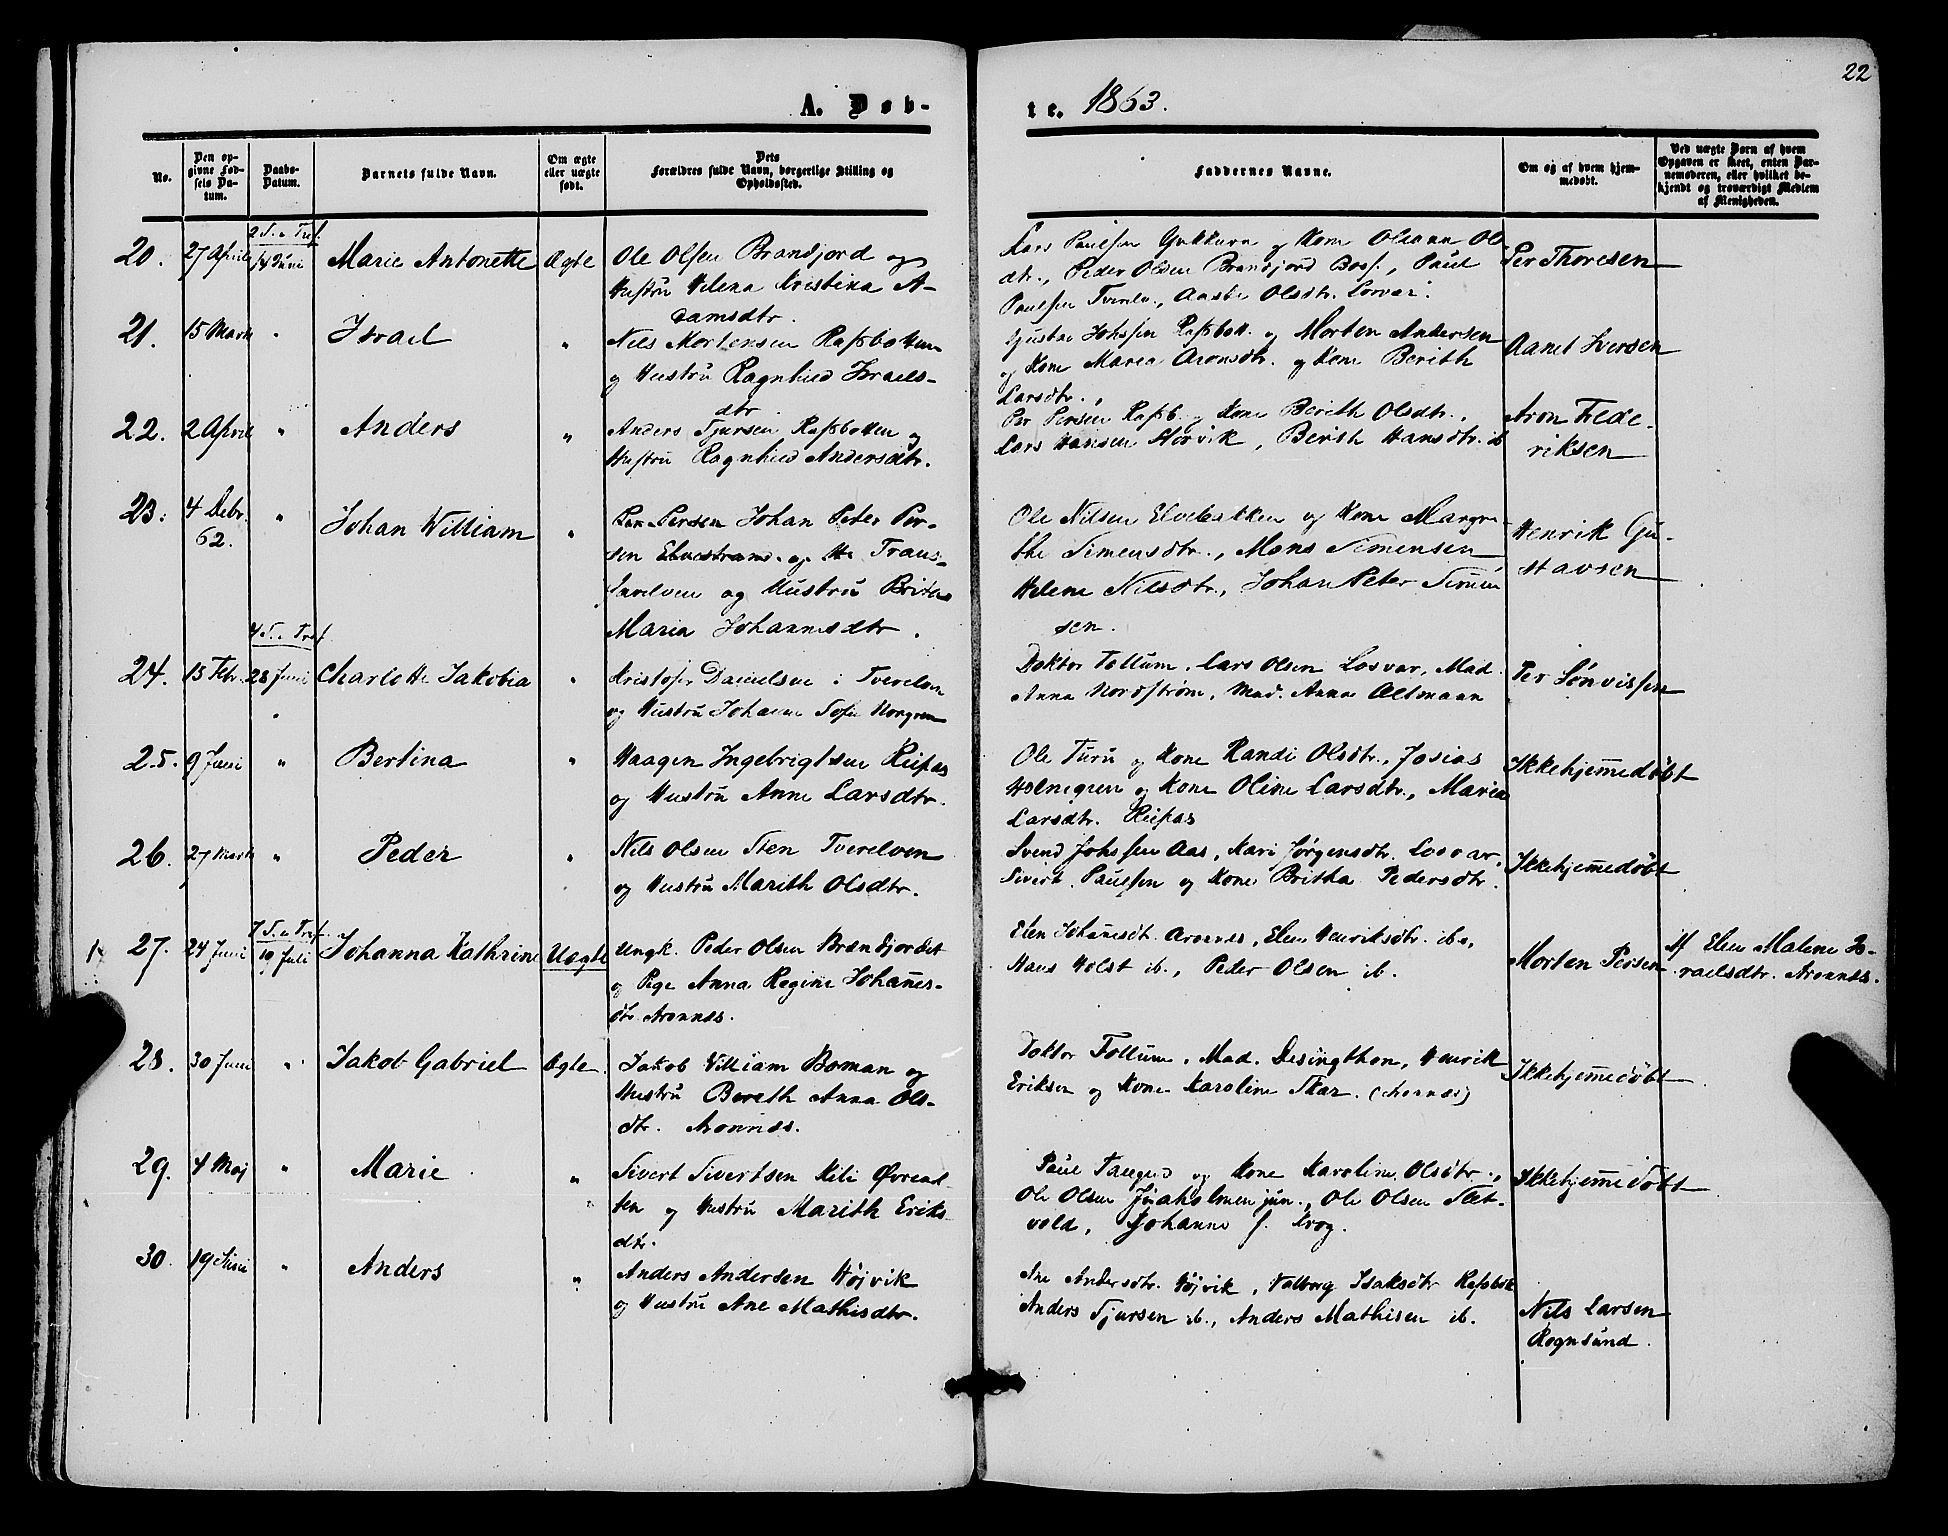 22
A. Døb-
te. 1863.
No.
Den op-
givne Fød-
sels Da-
tum.
Daabs-
Datum.
Barnets fulde Navn.
Om ægte
eller uægte
født.
Dets
Forældres fulde Navn, borgerlige Stilling og
Opholdssted.
Faddernes Navne.
Om og af hvem hjem-
medøbt.
Ved uægte Børn af hvem
Opgaven er skeet, enten Bar-
nemoderen, eller hvilket be-
kjendt og troværdigt Medlem
af Menigheden.
2 S. e. Tref.
20. 27 April 14 Juni Marie Antonette Ægte Ole Olsen Brandfjord og
Hustru Helena Kristina A-
damsdtr.
Lars Paulsen og Kone Olsdtr., Peder Olsen Brandfjord Boss., Paul
Paulsen Olsdtr.
Per Thoresen
21. 15 Marts " Israel " Nils Mortensen Rafsbotten
og Hustru Ragnhild Israels-
dtr.
Gustav Johssen Rafsbott. og Morten Andersen
og Kone Maria Aronsdtr. og Kone Berith
Larsdtr.,
Aanet Iversen
22. 2 April " Anders " Anders Sjursen Rafsbotten og
Hustru Ragnhild Andersdtr.
Per Persen Rafsb. og Kone Berith Olsdtr.,
Lars Hansen Storvik, Berith Hansdtr. ib
Aron Frede-
riksen
23. 4 Debr. 62. " Johan William " Per Persen Johan Peter Per-
sen Elvestrand og H Trans-
farelven og Hustru Brita
Maria Johannesdtr.
Ole Nilsen Elvebakken og Kone Margre
the Simensdtr., Mons Simensen
Helene Nilsdtr., Johan Peter Simen
sen.
Henrik Gu-
stavsen
4 S. e. Tref.
24. 15 Febr. 28 Juni Charlotte Jakobia " Kristofer Danielsen i Tverelven
og Hustru Johanne Sofie Norgren
Doktor Follum, Lars Olsen Losvar, Mad.
Anna Nordstrøm, Mad. Anna Altmann
Per Sønvissen
25. 9 Juni " Bertina " Haagen Ingebrigtsen Ripas
og Hustru Anne Larsdtr.
Ole Turu og Kone Randi Olsdtr., Josias
Holmgren og Kone Oline Larsdtr., Maria
Larsdtr. Ripas
Ikkehjemmedøbt
26. 27 Marts " Peder " Nils Olsen Sten Tverelven
og Hustru Marith Olsdtr.
Svend Johssen Aas, Kari Jørgensdtr. Losvar,
Sivert Paulsen og Kone Britha Pedersdtr.
Ikkehjemmedøbt
7 S. e. Tref.
27. 24 Juni 19 Juli Johanna Kathrine Uægte Ungk. Peder Olsen Brændfjordet
og Pige Anna Regine Johannes-
dtr. Aronnes.
Elen Johannesdt. Aronnes, Elen Henriksdtr. ib.,
Hans Holst ib., Peder Olsen ib.
Morten Persen
Af Elen Malene Is-
raelsdtr. Aronnes.
28. 30 Juni " Jakob Gabriel Ægte Jakob William Boman og
Hustru Bereth Anna Ols-
dtr. Aronnes.
Doktor Follum, Mad. Desingthon, Henrik
Eriksen og Kone Karoline Skar. (Aronnes)
Ikkehjemmedøbt
29. 4 Maj " Marie " Sivert Sivertsen Kili Øvreal-
ten og Hustru Marith Eriks-
dtr.
Paul og Kone Karoline Olsdtr.,
Ole Olsen Jiaholmen jun., Ole Olsen Slet-
vold, Johanne f. Krog.
Ikkehjemmedøbt
30. 19 Juni " Anders " Anders Andersen Højvik
og Hustru Ane Mathisdtr.
Ane Andersdtr. Højvik, Valborg Isaksdtr Rafsbot
Anders Sjursen ib., Anders Mathisen ib.
Nils Larsen
Rognsund.